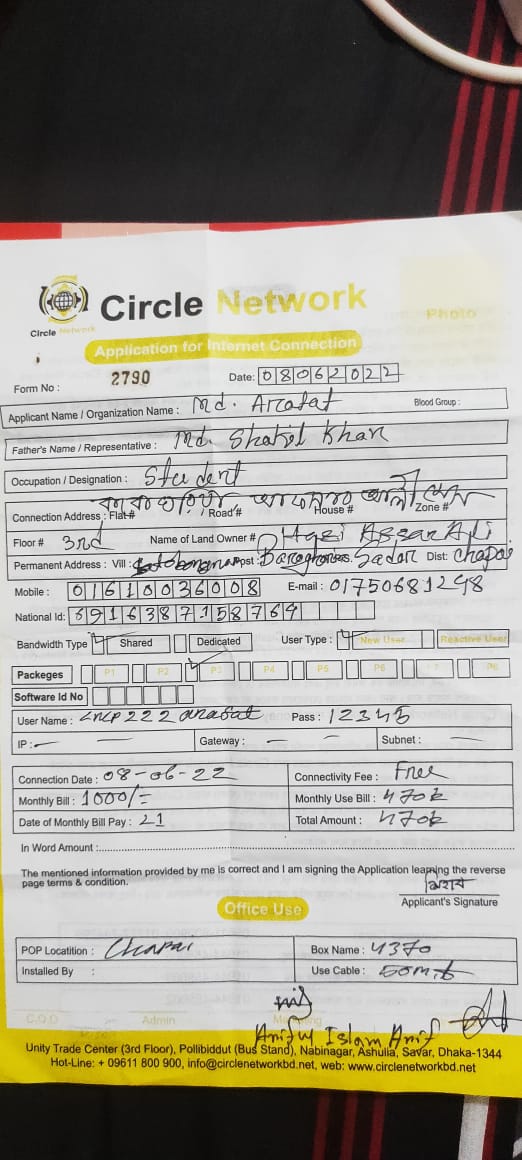 Circle Network
Circle Network
Photo
Application for Internet Connection
Form No : 2790 Date: 08062022
Applicant Name / Organization Name : Md. Arafat Blood Group :
Father's Name / Representative : Md. Shakil Khan
Occupation / Designation : Student
Connection Address : Flat# Road# House # Zone #
Floor # 3rd Name of Land Owner # Hazi Absar Ali
Permanent Address : Vill : Post : Sadar Dist: Chapai
Mobile : 01610036008 E-mail : 01750681298
National Id: 6916387158764
Bandwidth Type Shared Dedicated User Type : New User Reactive User
Packeges P1 P2 P3 P4 P5 P6 P7 P8
Software Id No
User Name : arafat Pass : 12345
IP : — — Gateway : — — Subnet : —
Connection Date : 08-06-22 Connectivity Fee : Free
Monthly Bill : 1000/= Monthly Use Bill : 470
Date of Monthly Bill Pay : 21 Total Amount : 470
In Word Amount :
The mentioned information provided by me is correct and I am signing the Application learning the reverse
page terms & condition.
Applicant's Signature
Office Use
POP Locatition : Chapai Box Name : 4370
Installed By : Use Cable : 50
C.O.O Admin
Ariful Islam Arif
Unity Trade Center (3rd Floor), Pollibiddut (Bus Stand), Nabinagar, Ashulia, Savar, Dhaka-1344
Hot-Line: + 09611 800 900, info@circlenetworkbd.net, web: www.circlenetworkbd.net